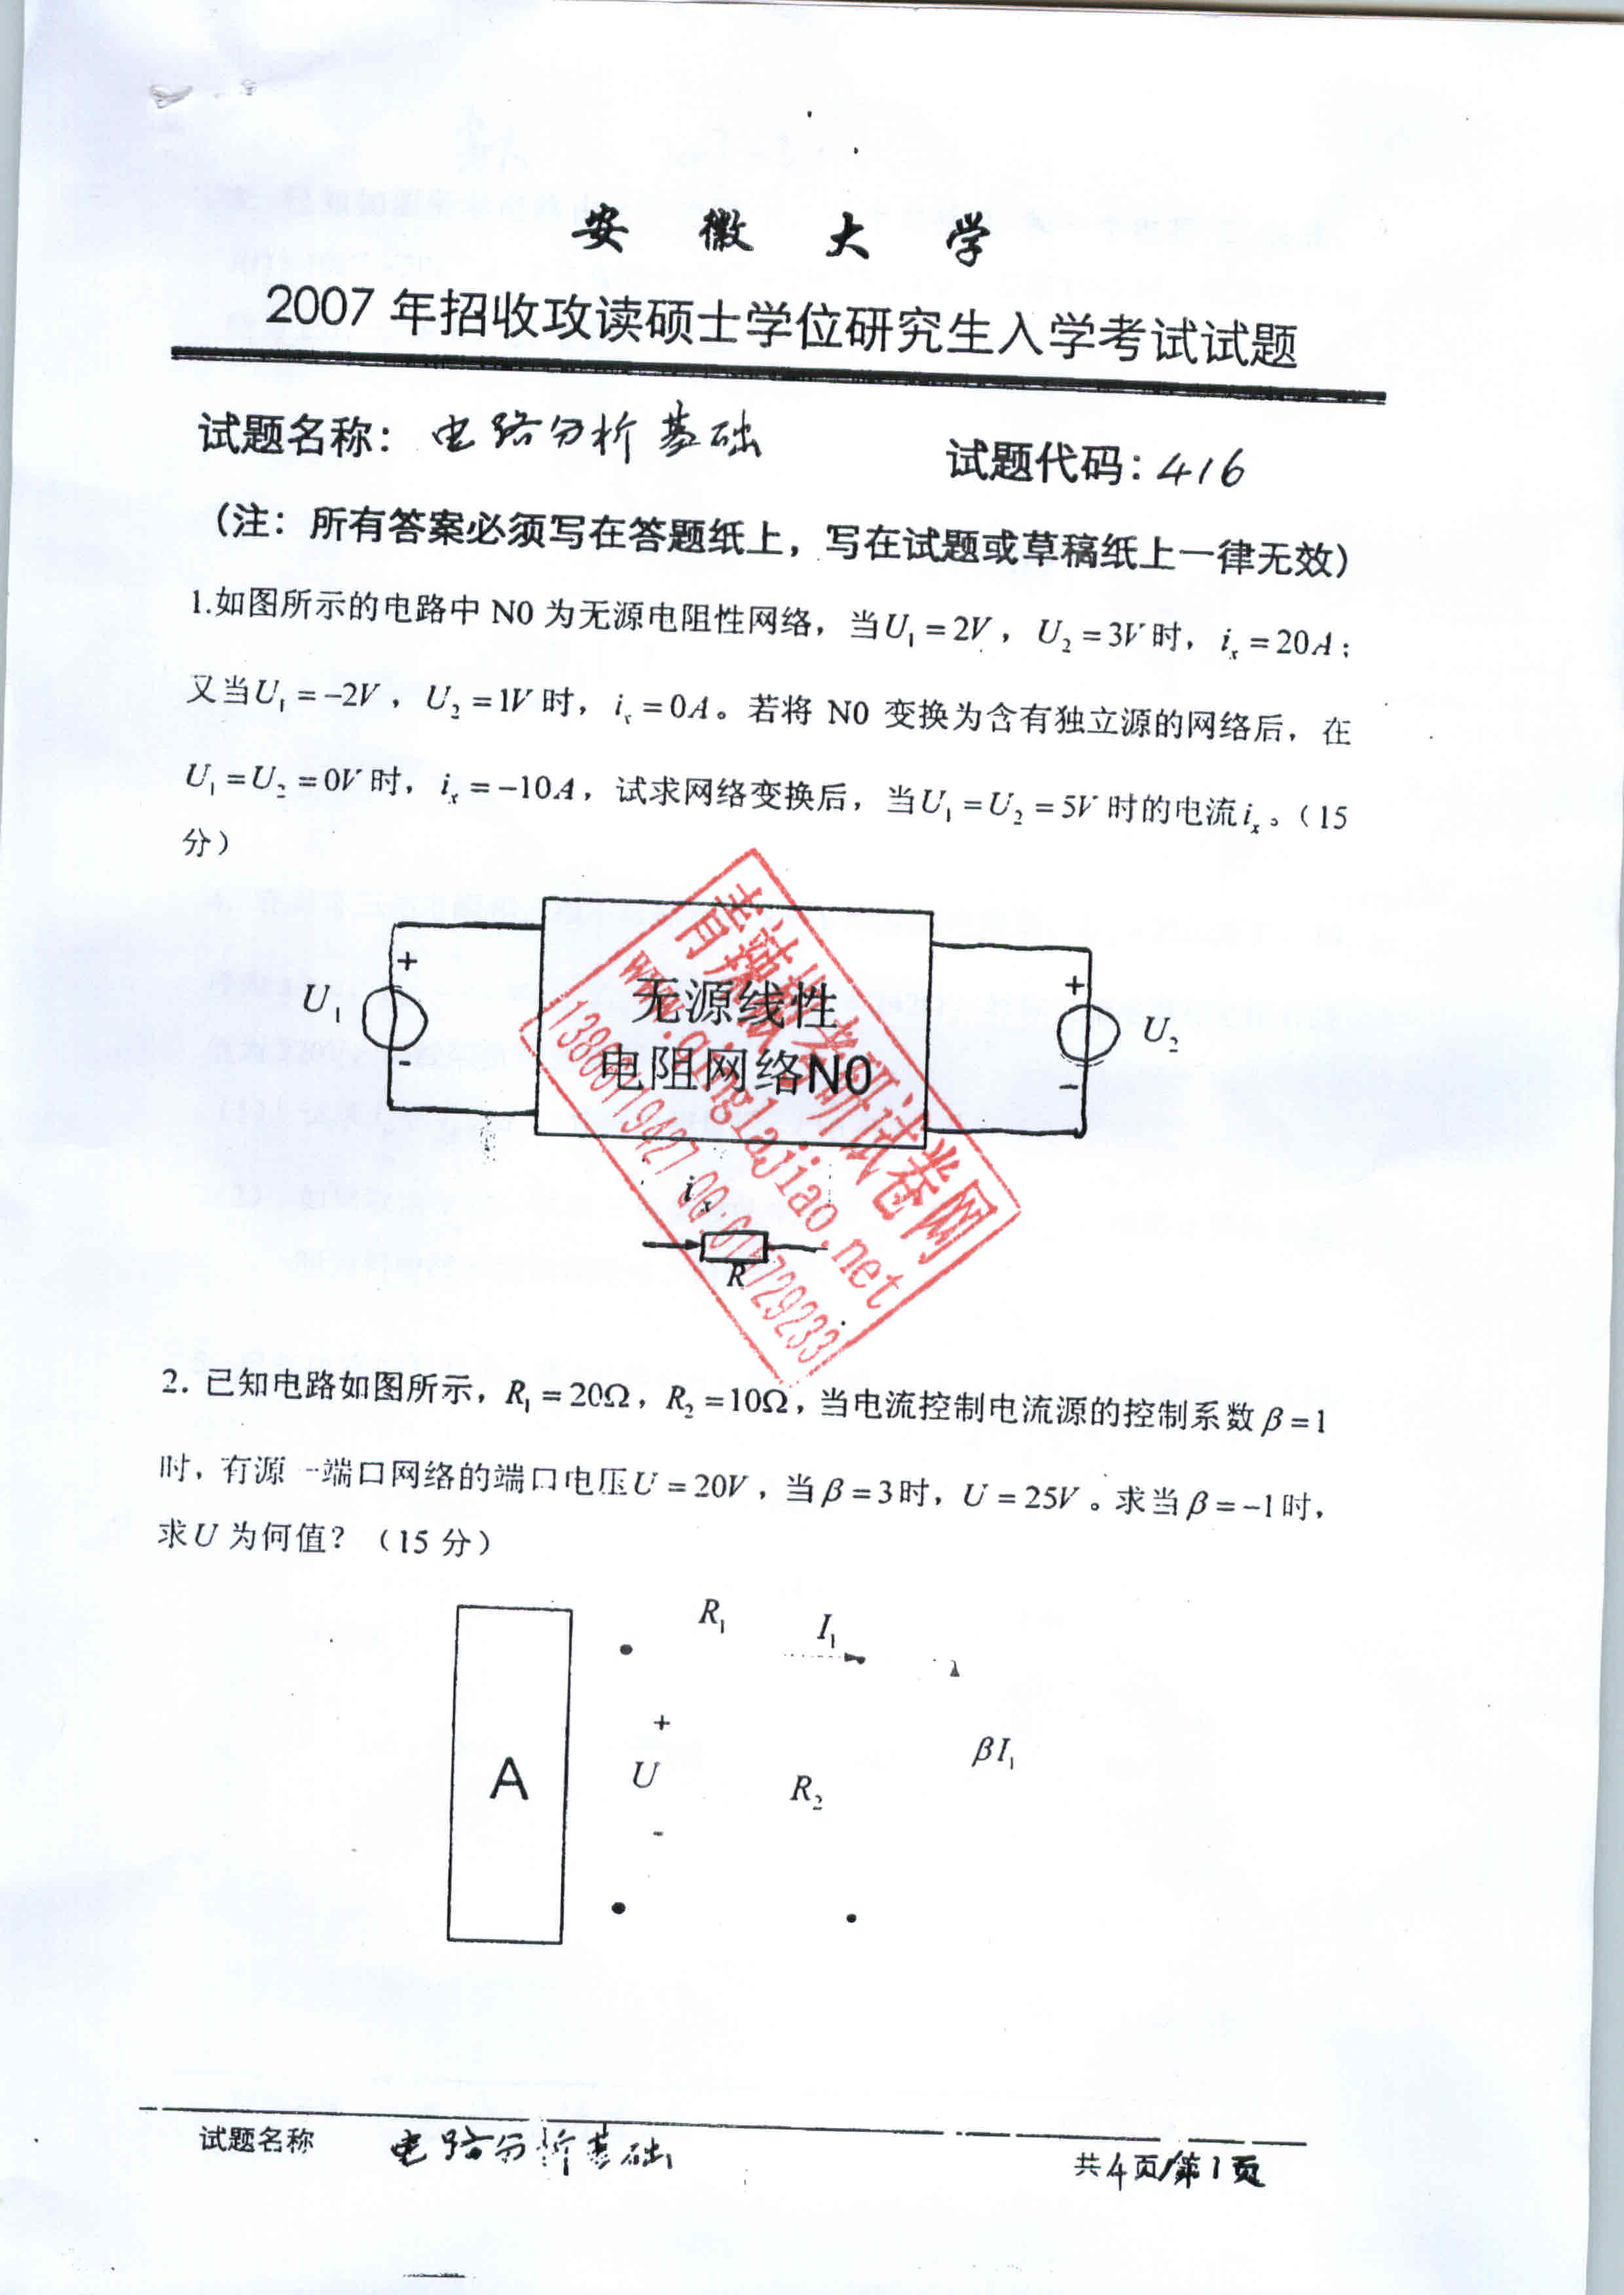 安 徽 大 学
2007 年招收攻读硕士学位研究生入学考试试题
试题名称: 电路分析基础 试题代码: 416
(注：所有答案必须写在答题纸上，写在试题或草稿纸上一律无效)
1.如图所示的电路中 N0 为无源电阻性网络，当U₁ = 2V，U₂ = 3V 时，iₓ = 20A；
又当U₁ = -2V，U₂ = 1V 时，iₓ = 0A。若将 N0 变换为含有独立源的网络后，在
U₁ = U₂ = 0V 时，iₓ = -10A，试求网络变换后，当U₁ = U₂ = 5V 时的电流iₓ。(15
分)
+
+
U₁
无源线性
U₂
电阻网络N0
-
-
iₓ
R
青辣椒考研试卷网
www.qinglajiao.net
2. 已知电路如图所示，R₁ = 20Ω，R₂ = 10Ω，当电流控制电流源的控制系数β = 1
时，有源一端口网络的端口电压U = 20V，当β = 3时，U = 25V。求当β = -1时，
求U 为何值？（15 分）
R₁
I₁
+
A
U
R₂
βI₁
-
试题名称 电路分析基础 共4页第1页